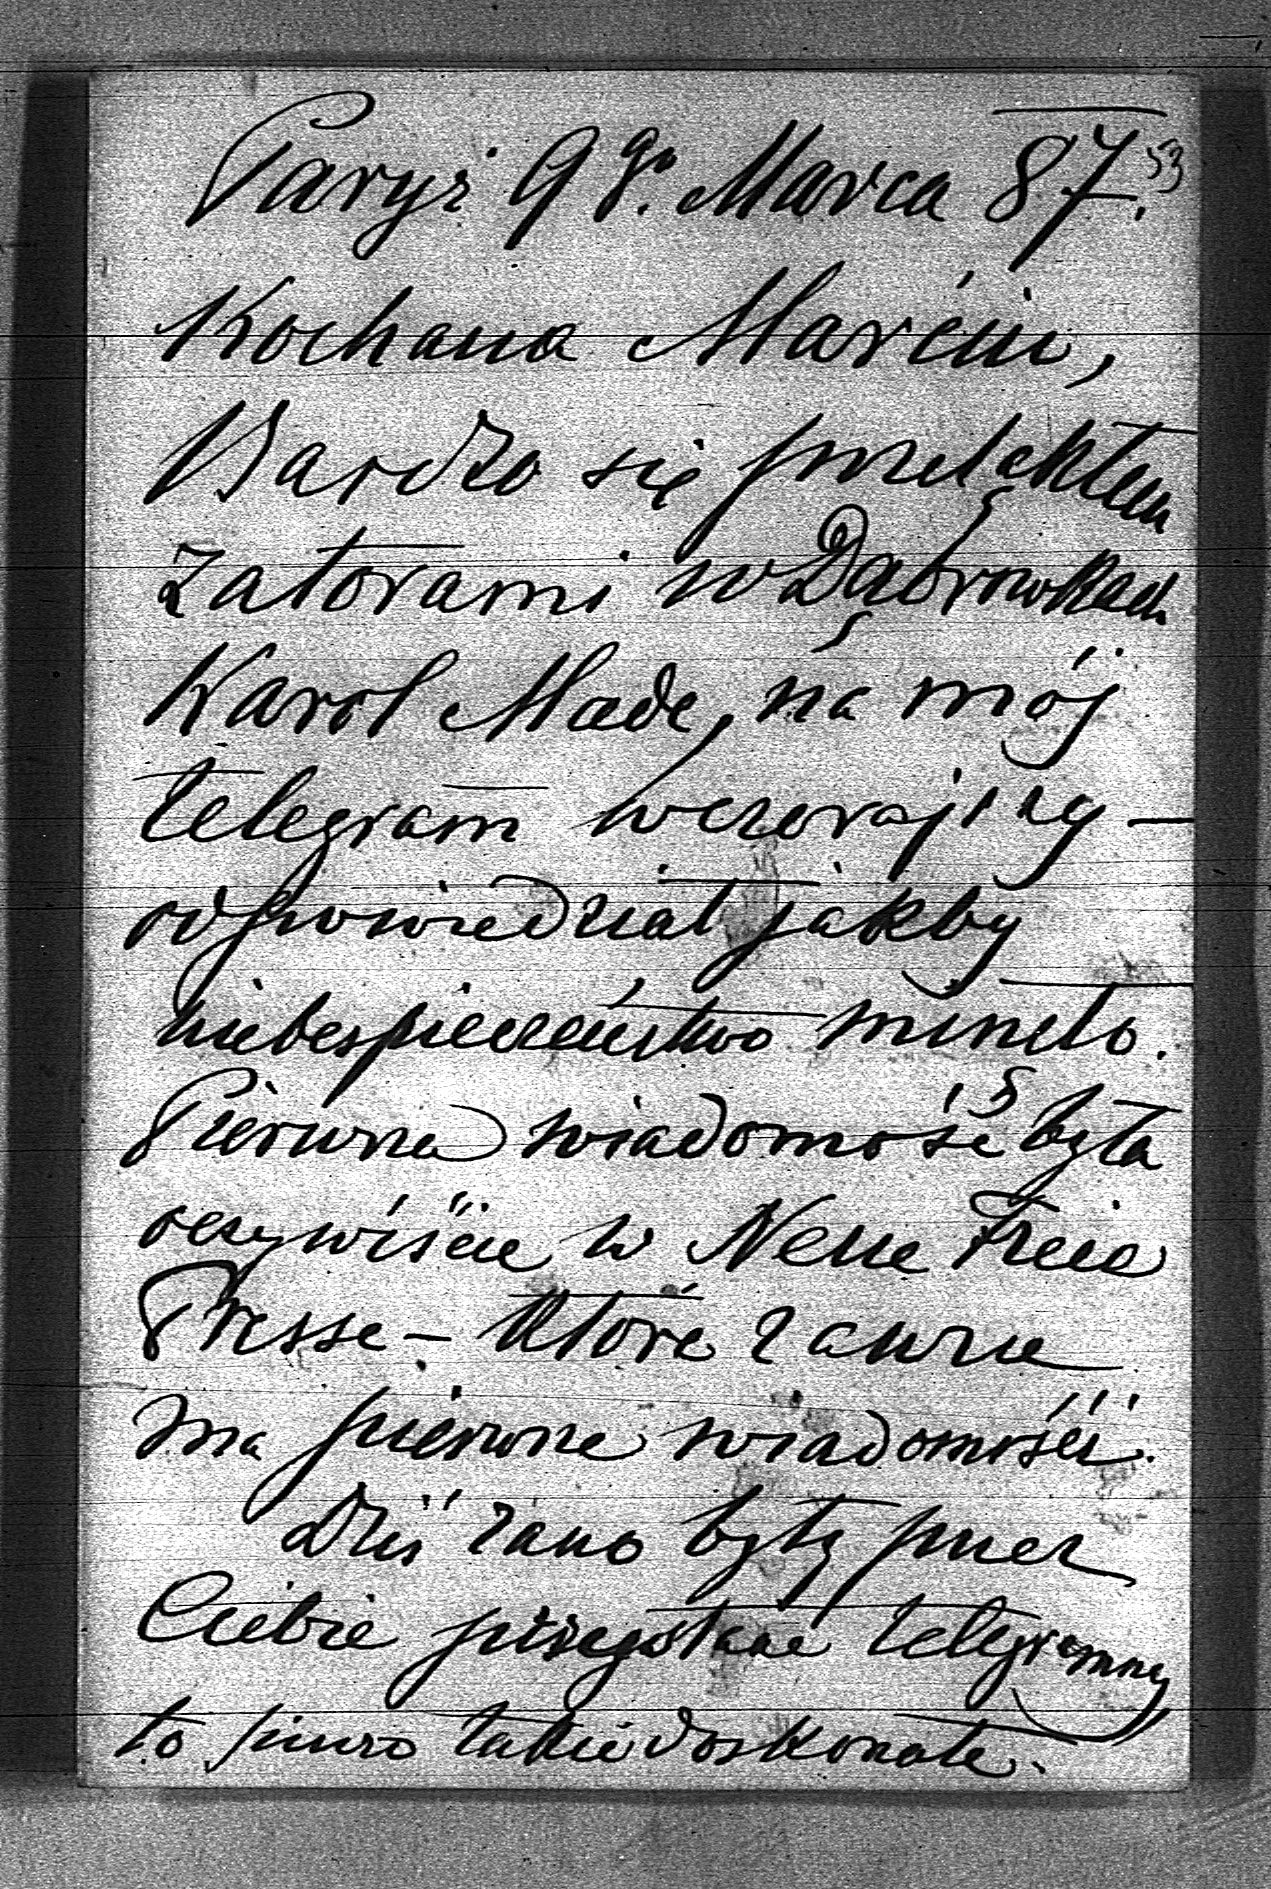 53
Paryż 9go. Marca 87.
Kochana Marciu,
Bardzo się przeląkłem
zatorami w Dąbrówkach
Karol Made, na mój
telegram wczorajszy —
odpowiedział jakby
niebespieczeństwo minęło.
Pierwsza wiadomość była
oczywiście w Neue Freie
Presse – które zawsze
ma pierwsze wiadomości.
Dziś rano były przez
Ciebie przysłane telegrammy
to piwo takie doskonałe.